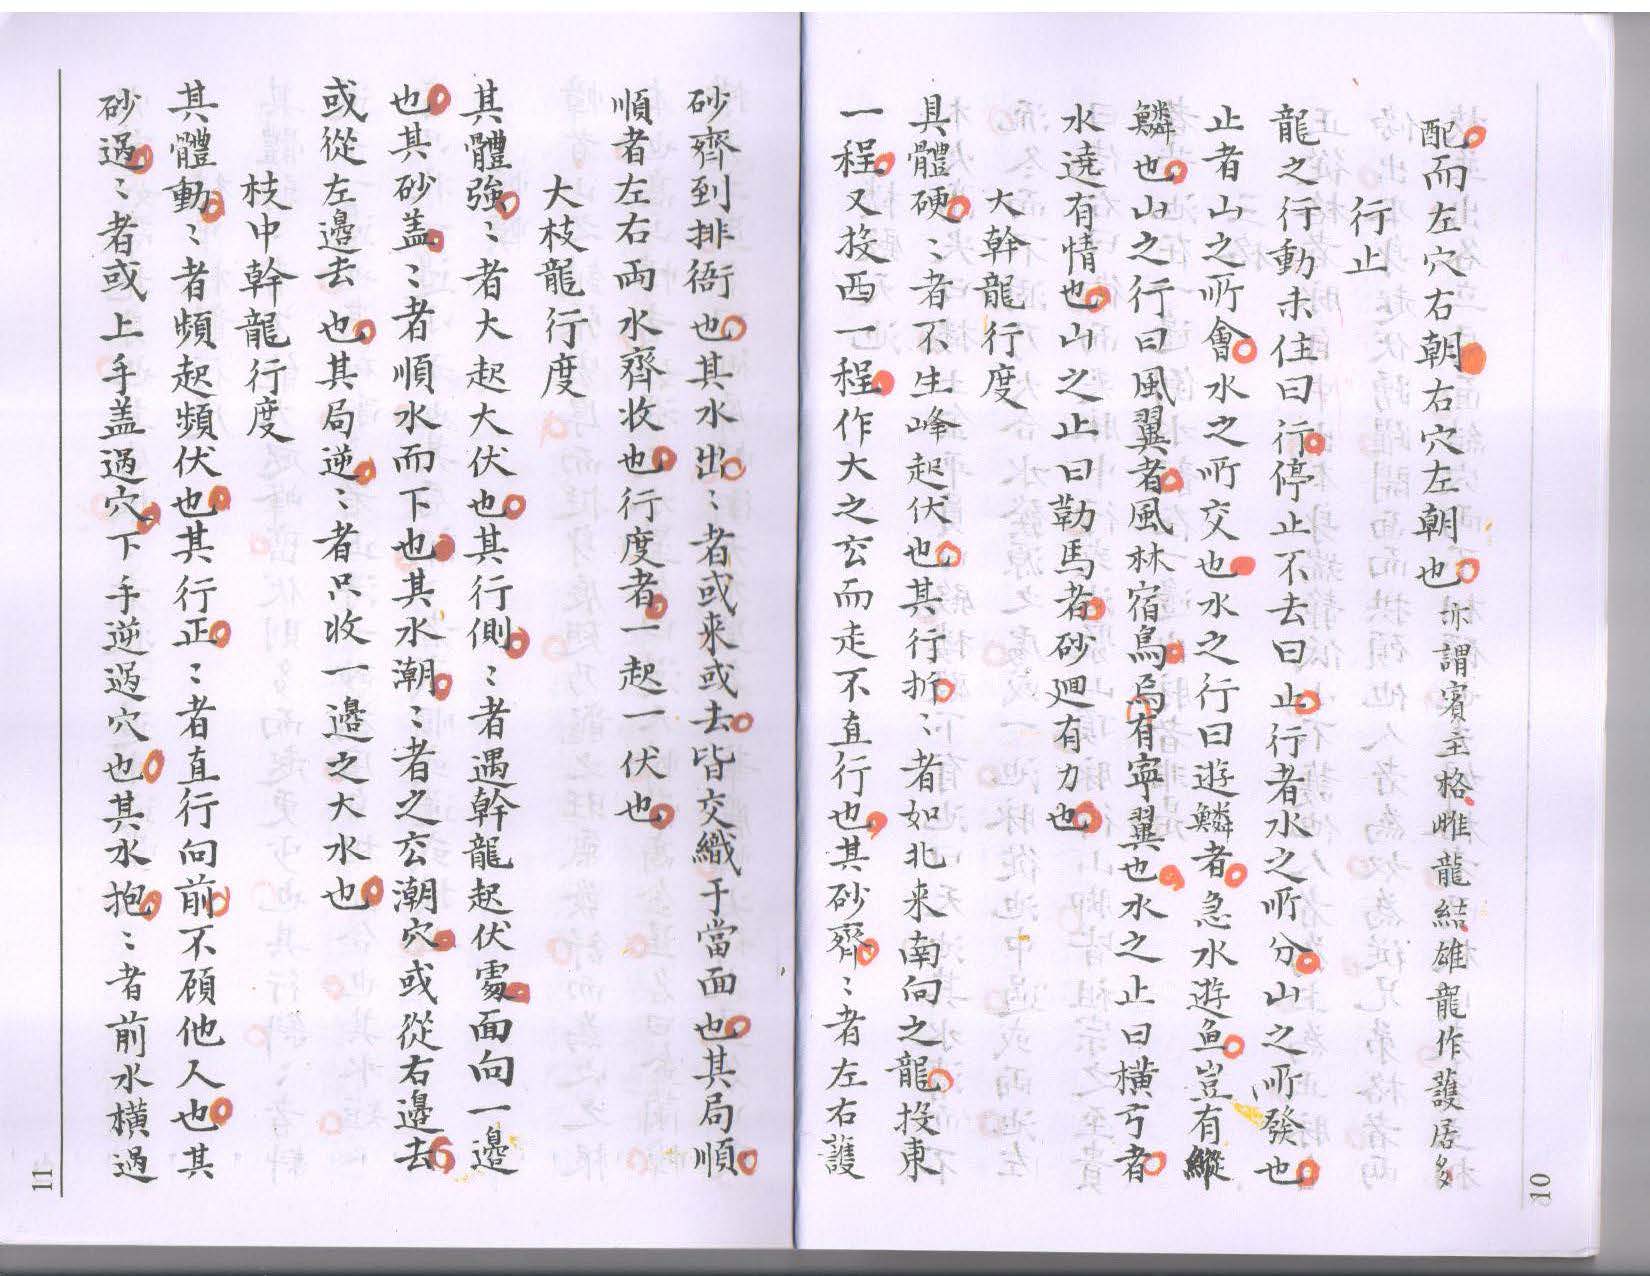 配而左穴右朝右穴左朝也亦謂賓主格雌龍結雄龍作護居多
行止
龍之行動未住曰行停止不去曰止行者水之所分山之所發也
止者山之所會水之所交也水之行曰遊鱗者急水遊魚豈有縱
鱗也山之行曰風翼者風林宿鳥焉有寧翼也水之止曰橫弓者
水遶有情也山之止曰勒馬者砂廻有力也
大幹龍行度
具體硬〻者不生峰起伏也其行折〻者如北来南向之龍投東
一程又投西一程作大之玄而走不直行也其砂齊〻者左右護
砂齊到排衙也其水出〻者或来或去皆交織于當面也其局順
順者左右両水齊收也行度者一起一伏也
大枝龍行度
其體強〻者大起大伏也其行側〻者遇幹龍起伏處面向一邊
也其砂盖〻者順水而下也其水潮〻者之玄潮穴或從右邊去
或從左邊去也其局逆〻者只收一邊之大水也
枝中幹龍行度
其體動〻者頻起頻伏也其行正〻者直行向前不顧他人也其
砂過〻者或上手盖過穴下手逆過穴也其水抱〻者前水橫過
10
11